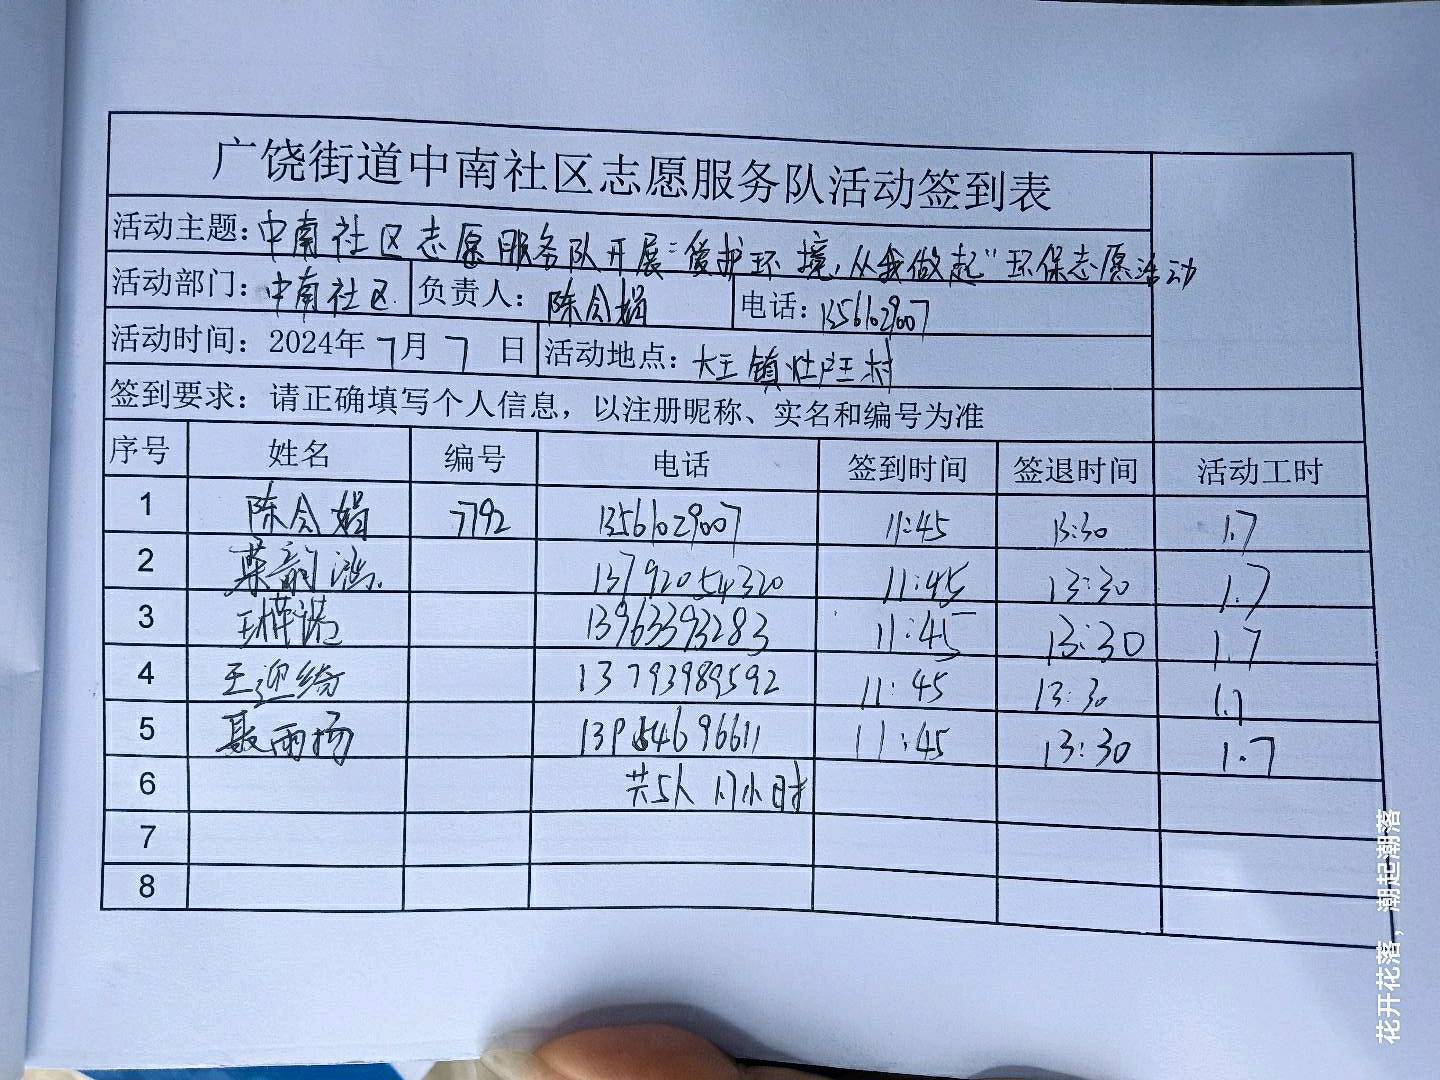 广饶街道中南社区志愿服务队活动签到表
活动主题：中南社区志愿服务队开展"爱护环境，从我做起"环保志愿活动
活动部门：中南社区 负责人：陈令娟 电话：13561029007
活动时间：2024年7月7日 活动地点：大王镇灶户王村
签到要求：请正确填写个人信息，以注册昵称、实名和编号为准
序号 姓名 编号 电话 签到时间 签退时间 活动工时
1 陈令娟 7792 13561029007 11:45 13:30 1.7
2 13792054320 11:45 13:30 1.7
3 13963393283 11:45 13:30 1.7
4 王迎绮 13793989592 11:45 13:30 1.7
5 聂雨杨 11:45 13:30 1.7
6 共5人 1.7小时
7
8
花开花落，潮起潮落